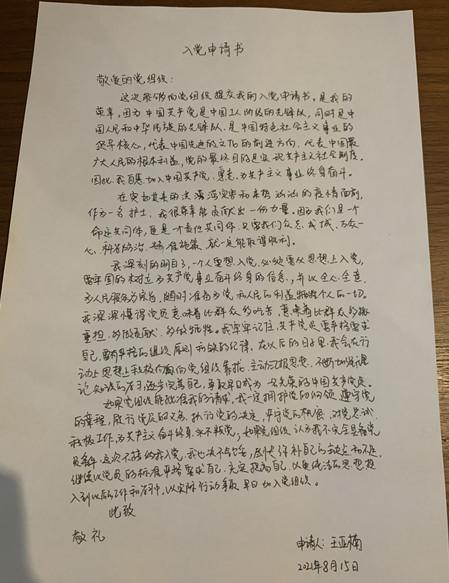 入党申请书
敬爱的党组织：
这次能够向党组织提交我的入党申请书，是我的
荣幸，因为中国共产党是中国工人阶级的先锋队，同时是中
国人民和中华民族的先锋队，是中国特色社会主义事业的
领导核心，代表中国先进的文化的前进方向，代表中国最
广大人民的根本利益，党的最终目的是实现共产主义社会制度。
因此，我自愿加入中国共产党，愿意为共产主义事业终身奋斗。
在突如其来的洪涝灾害和来势汹汹的疫情面前，
作为一名护士，我很荣幸能贡献出一份力量。因为我们是一个
命运共同体，更是一个责任共同体，只要我们众志成城、万众一
心、科学防治、精准施策，就一定能取得胜利。
我深刻的明白了，一个人要想入党，必须要从思想上入党，
要牢固的树立为共产主义事业奋斗终身的信念，并以全心全意
为人民服务为宗旨，随时准备为党和人民的利益牺牲个人的一切。
我深深懂得党员意味着比群众多吃苦，意味着比群众多挑
重担，多做贡献，多做牺牲。我牢牢记住，共产党员要严格要求
自己，要有严格的组织原则和铁的纪律，在以后的日子里，我会在行
动上思想上积极的向党组织靠拢，主动汇报思想，不断加强理
论知识的学习逐步完善自己，争取早日成为一名光荣的中国共产党党员。
如果党组织能批准我的请求，我一定拥护党的纲领，遵守党
的章程，履行党员的义务，执行党的决定，严守党的机密，对党忠诚
积极工作，为共产主义奋斗终身，永不叛党，如果党组织认为我不完全具备党
员条件，这次不接纳我入党，我也决不气馁，
继续以党员的标准严格要求自己，充实提高自己，以更饱满的思想投
入到以后的工作和学习中，以实际行动争取早日加入党组织。
此致
敬礼
申请人：王亚楠
2021年8月15日